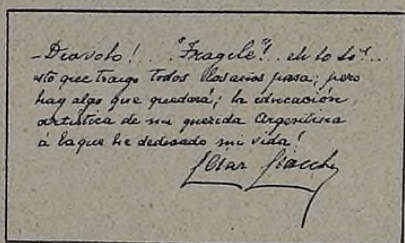 -Diavolo!... "Fragele"!.. eh lo só!..
esto que traigo todos los años pasa; pero
hay algo que quedará; la educación
artística de mi querida Argentina
á la que he dedicado mi vida!
Cesar